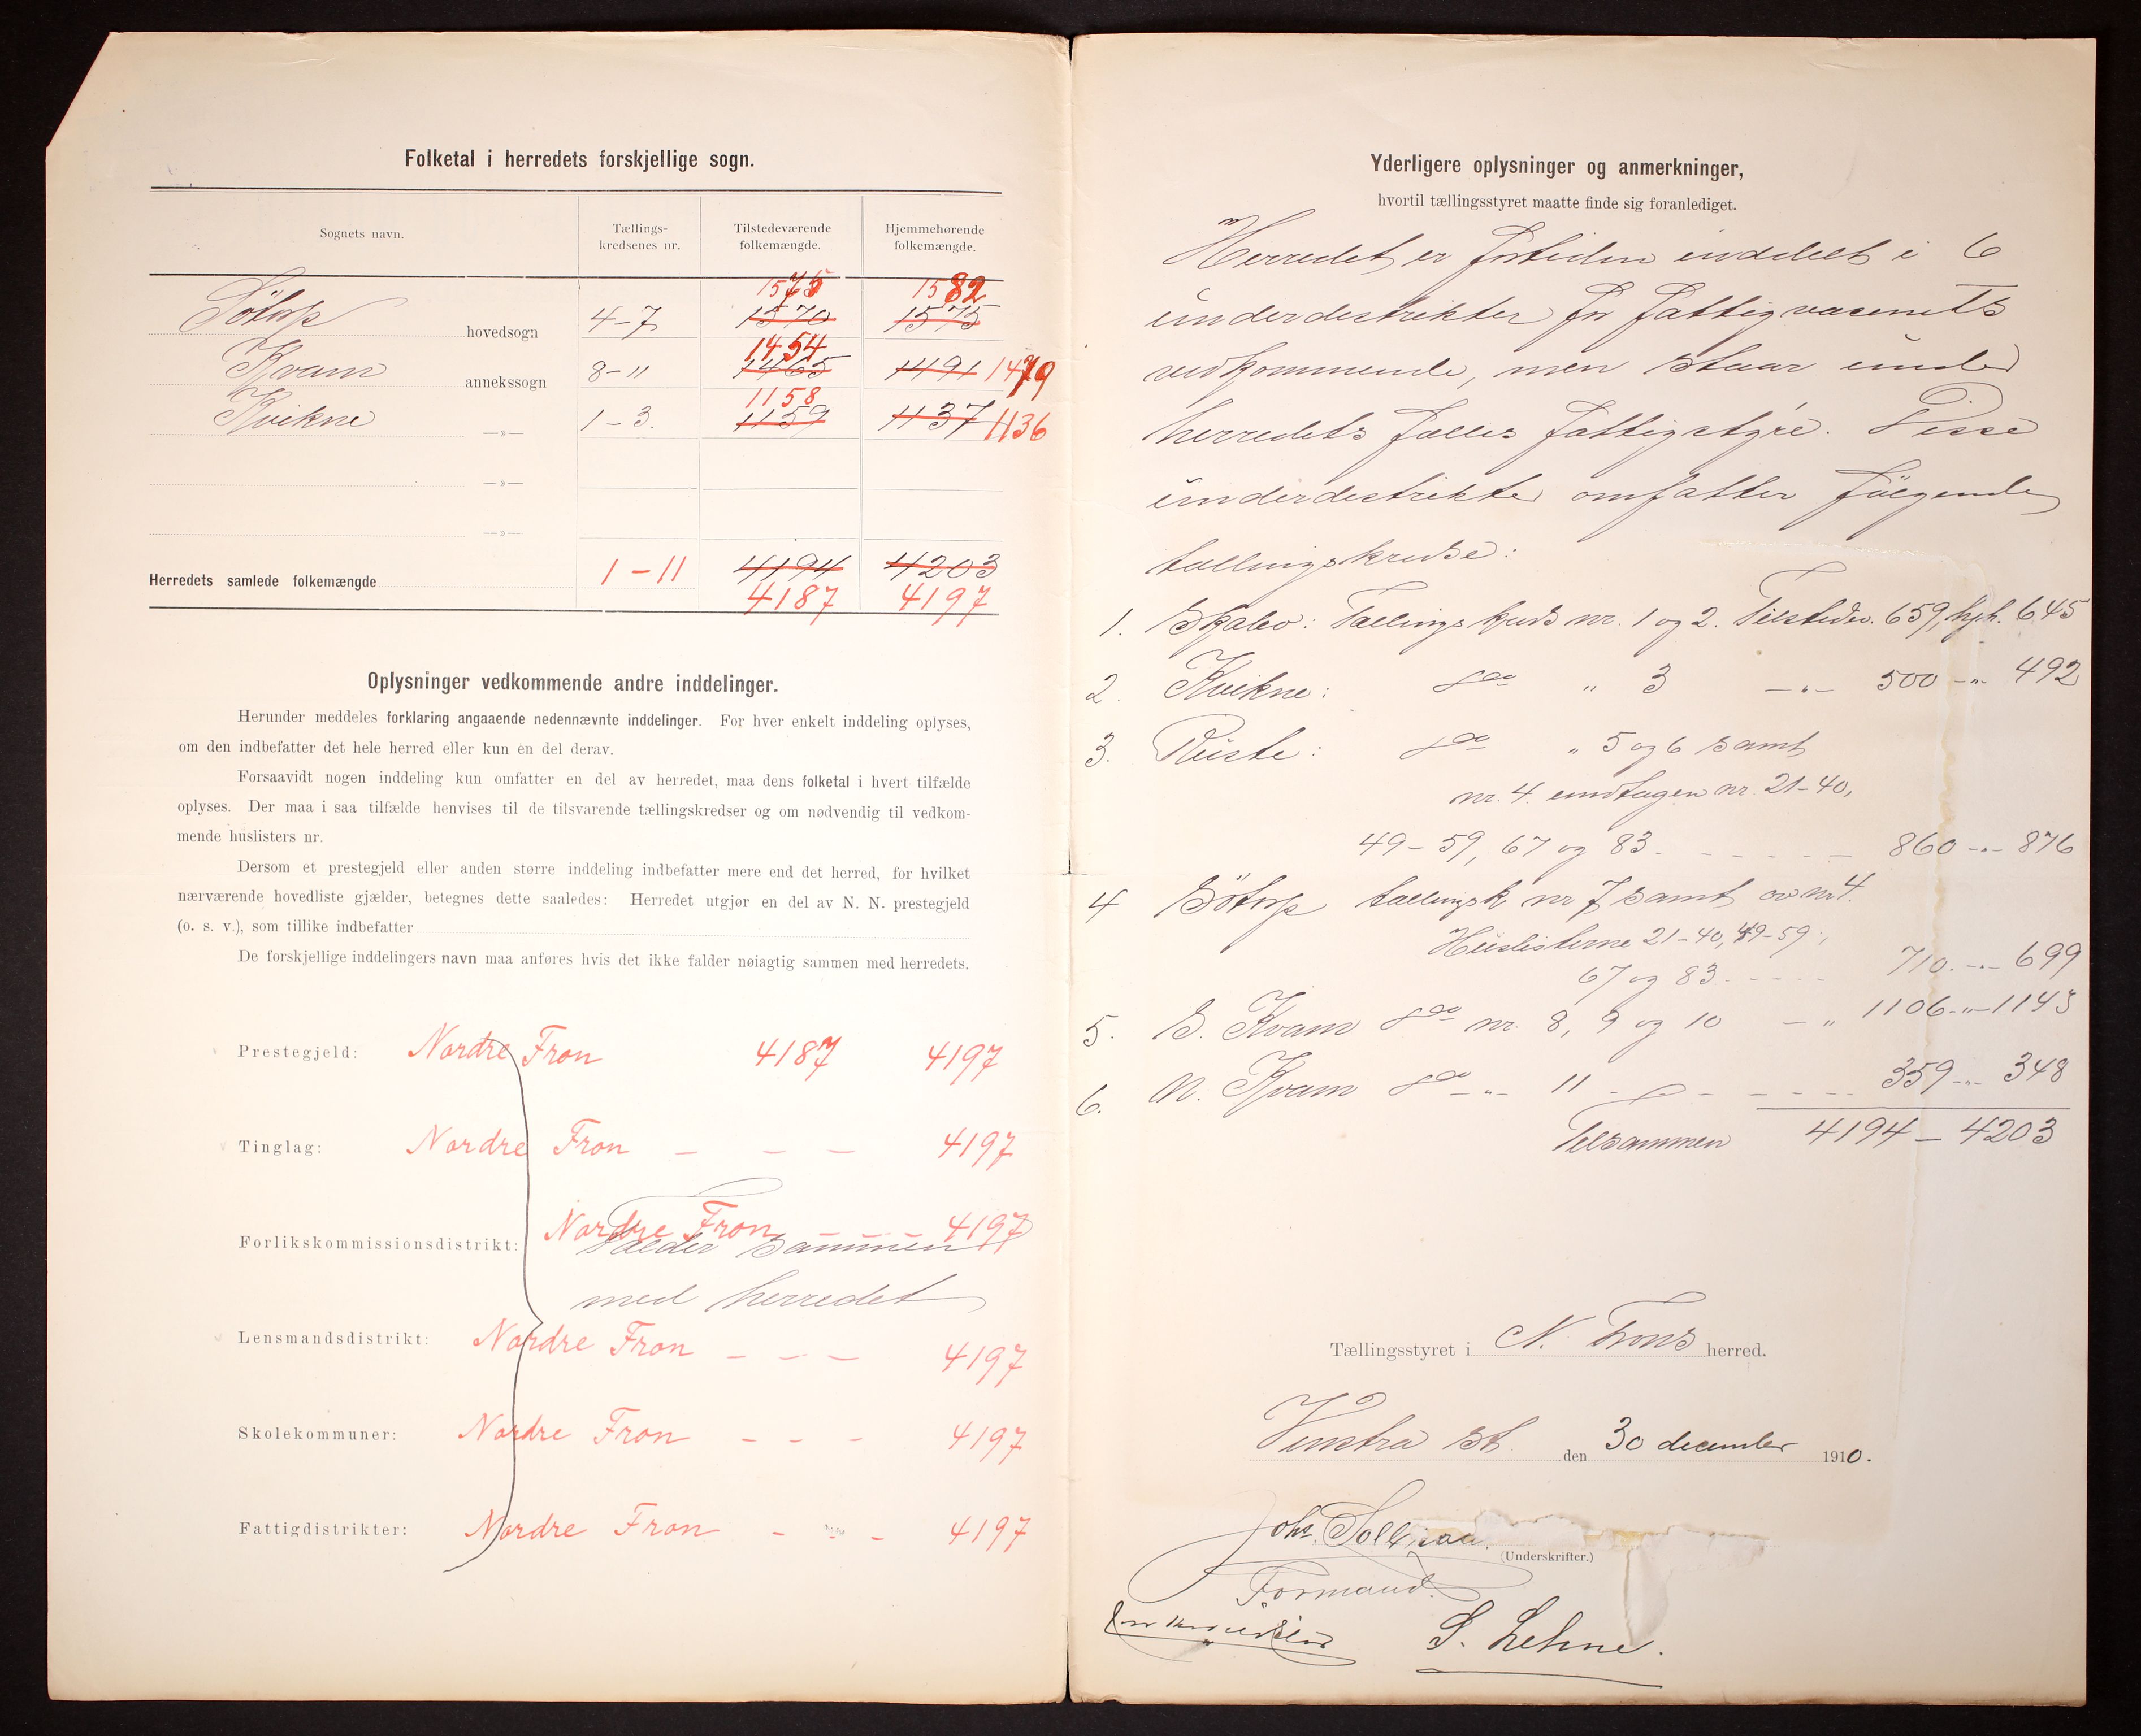 Folketal i herredets forskjellige sogn.
Sognets navn. Tællings-kredsenes nr. Tilstedeværende folkemængde. Hjemmehørende folkemængde.
1575 1582
Sötorp hovedsogn 4-7 1570 1575
1454
Kvam annekssogn 8-11 1465 1491 1479
1158
Kvikne —»— 1-3. 1159 1137 1136
—»—
—»—
Herredets samlede folkemængde 1-11 4194 4203
4187 4197
Oplysninger vedkommende andre inddelinger.
Herunder meddeles forklaring angaaende nedennævnte inddelinger. For hver enkelt inddeling oplyses,
om den indbefatter det hele herred eller kun en del derav.
Forsaavidt nogen inddeling kun omfatter en del av herredet, maa dens folketal i hvert tilfælde
oplyses. Der maa i saa tilfælde henvises til de tilsvarende tællingskredser og om nødvendig til vedkom-
mende huslisters nr.
Dersom et prestegjeld eller anden større inddeling indbefatter mere end det herred, for hvilket
nærværende hovedliste gjælder, betegnes dette saaledes: Herredet utgjør en del av N. N. prestegjeld
(o. s. v.), som tillike indbefatter
De forskjellige inddelingers navn maa anføres hvis det ikke falder nøiagtig sammen med herredets.
Prestegjeld: Nordre Fron 4187 4197
Tinglag: Nordre Fron – – – 4197
Forlikskommissionsdistrikt: Nordre Fron – – – 4197
Falder sammen
med herredet
Lensmandsdistrikt: Nordre Fron – – – 4197
Skolekommuner: Nordre Fron – – – 4197
Fattigdistrikter: Nordre Fron – – 4197
Yderligere oplysninger og anmerkninger,
hvortil tællingsstyret maatte finde sig foranlediget.
Herredet er fortiden inddelt i 6
underdestrikter for fattigvæsenets
vedkommende, men staar under
herredets fælles fattigstyre. Disse
underdestrikter omfatter følgende
tællingskredse:
1. Skabo: Tællingskreds nr. 1 og 2. Tilstedev. 659, hjh. 645
2. Kvikne: do " 3 –"– 500 –"– 492
3. Ruste: do " 5 og 6 samt
nr. 4. undtagen nr. 21-40,
49-59, 67 og 83. – – – – – 860 –"– 876
4 Sötorp tællingsk nr 7 samt av nr 4.
Huslisterne 21-40, 49-59,
67 og 83. – – – – 710. –"– 699
5. S. Kvam do nr. 8, 9 og 10 – " 1106 –"– 1143
6. N. Kvam do –"– 11 – – – – – 359 –"– 348
Tilsammen 4194 – 4203
Tællingsstyret i N. Frons herred.
Vinstra st. den 30 december 1910.
Johs.
(Underskrifter.)
Formand.
S. Lehne.